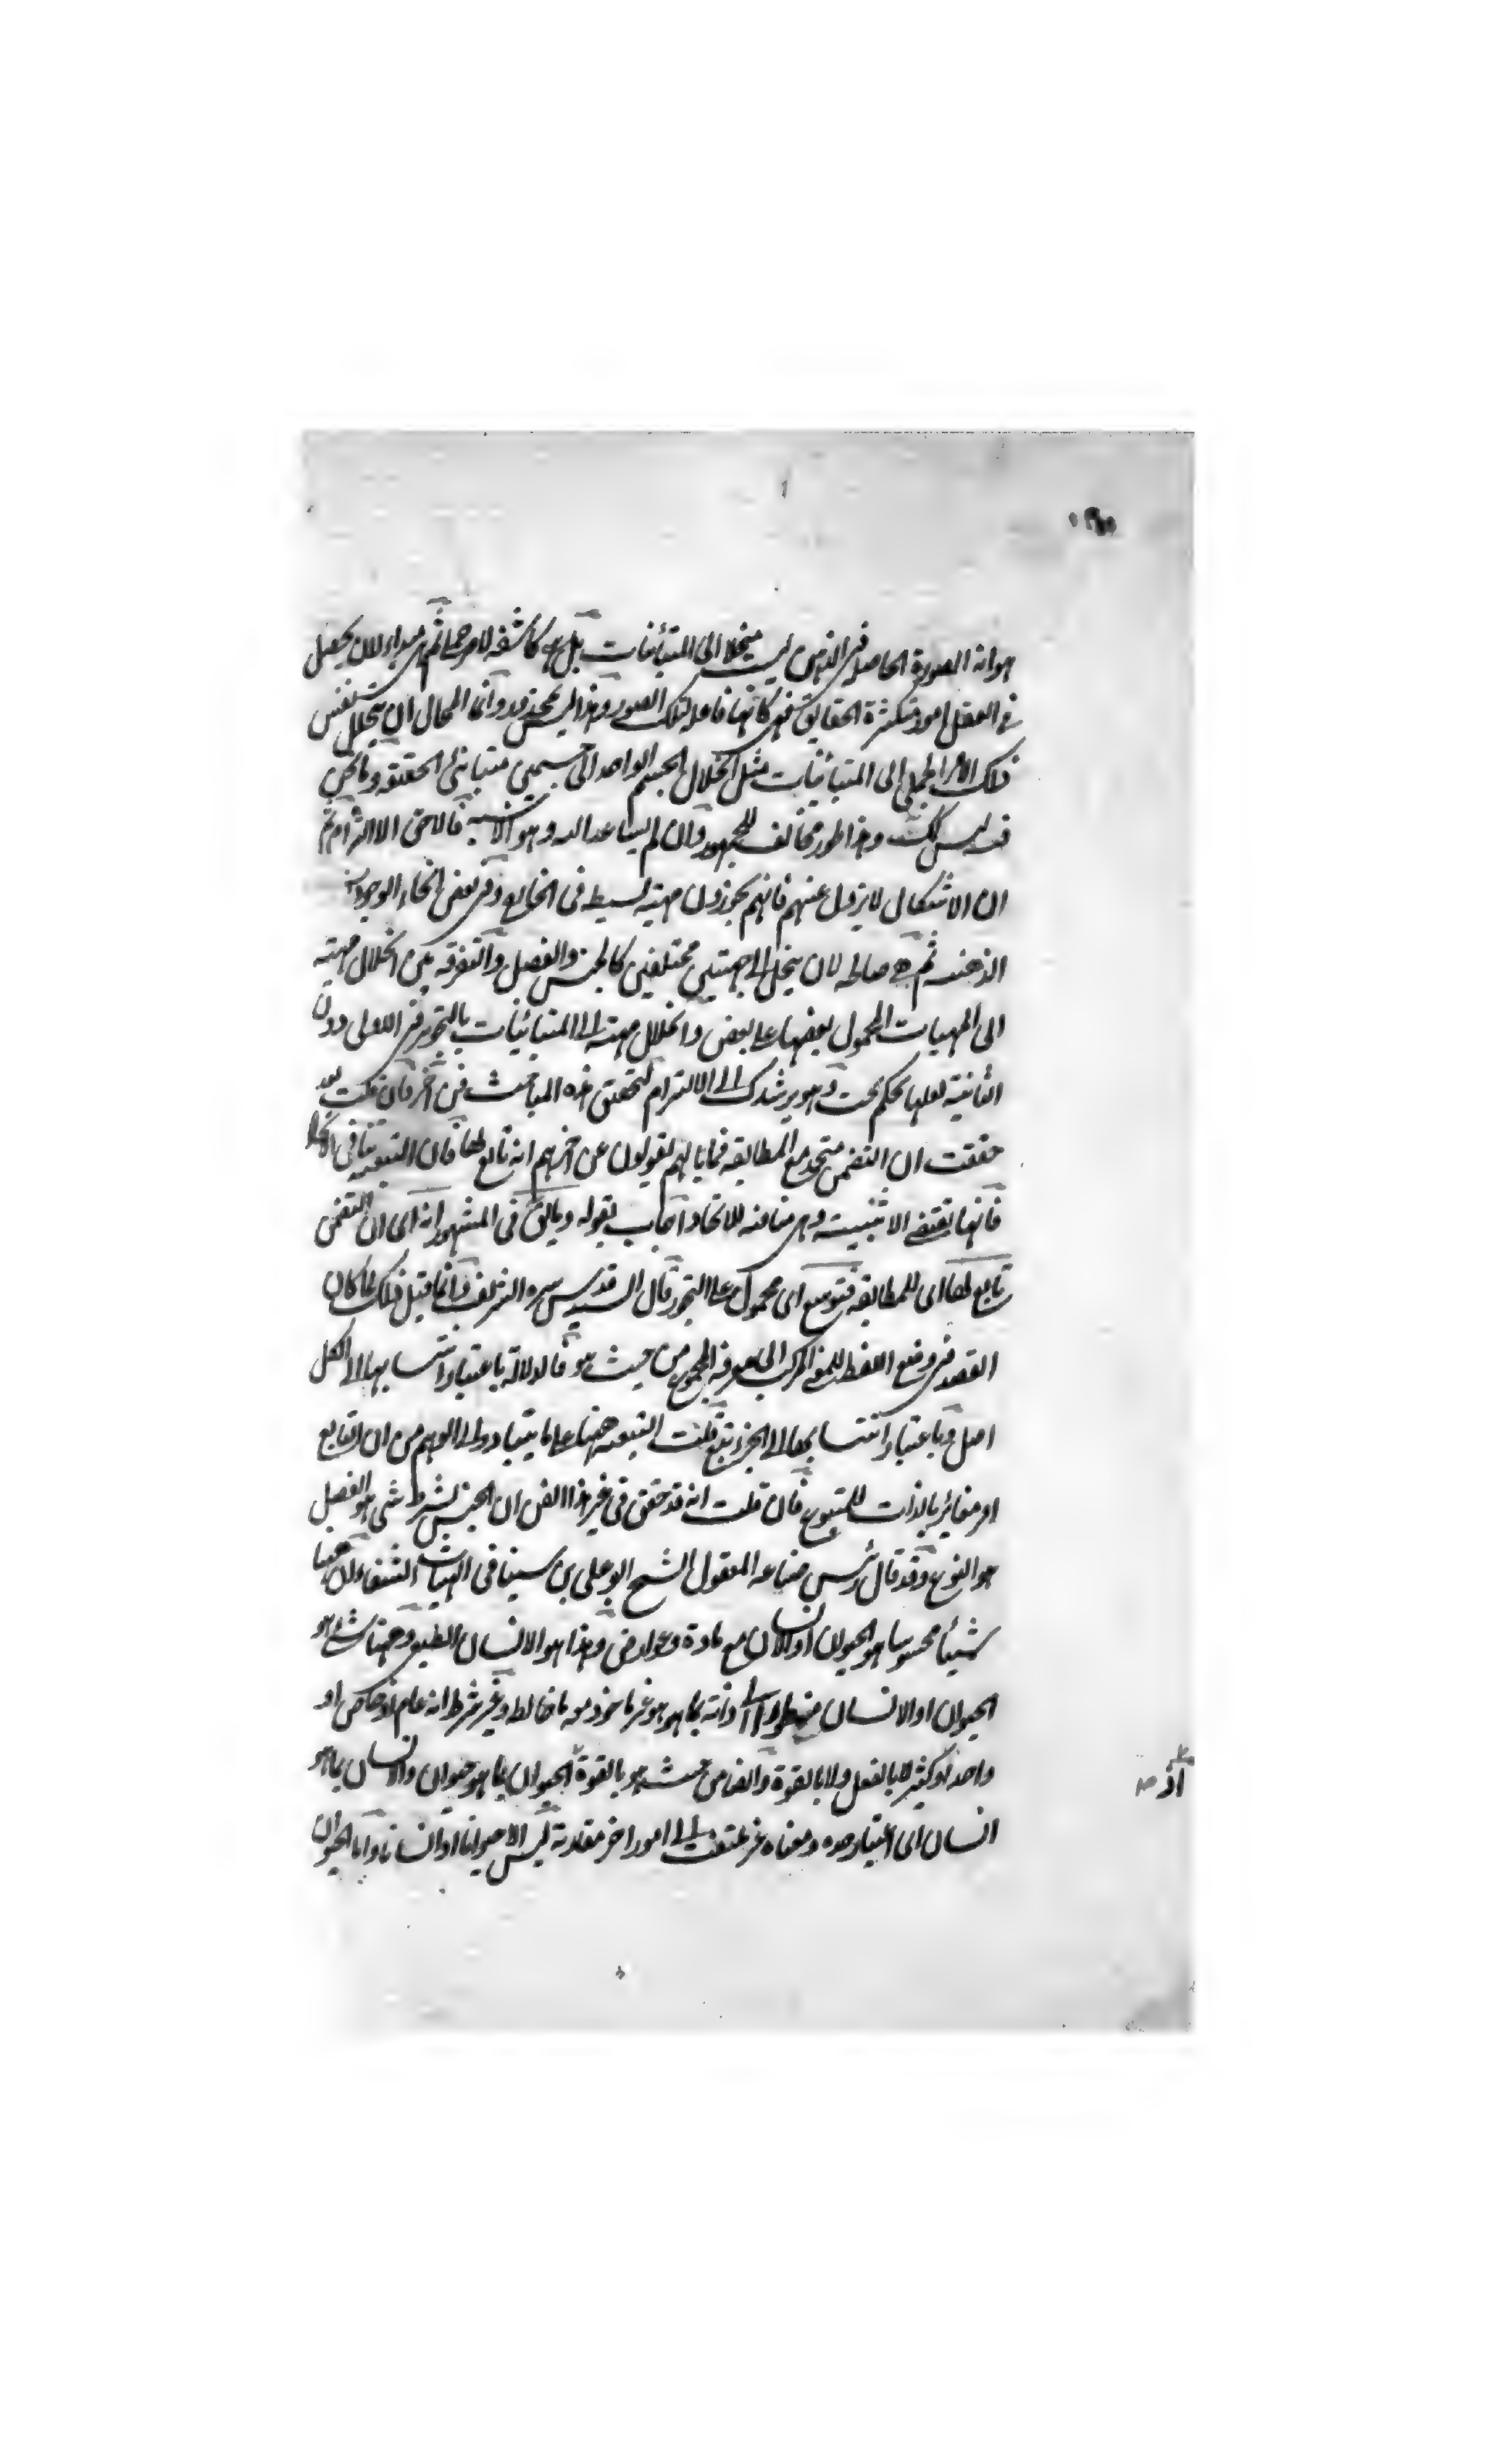 هو انه الصورة الحاصلة في الذهن ليست منحلا الى المتبائنات بل هي كاشفة لامر جملي ثم هي مبداء لان يحصل
في العقل امور متكثرة الحقايق فهي كانها فاعلة لتلك الصور وهذا ليس بمحذور وانما المحال ان ينحل نفس
ذلك الامر الجملي الى المتبائنات مثل انحلال الجسم الواحد الى جسمين متبائني الحقيقة وما نحن
فيه ليس كذلك وهذا طور مخالف للجمهور وان لم يساعد الدهر هو الاشبه فالاحق الالتزام ثم
ان الاشكال لا يزول عنهم فانهم يجوزون مهية بسيطة في الخارج وفي بعض انحاء الوجودات
الذهنية ثم هي صالحة لان ينحل الى مهيتين مختلفتين كالجنس والفصل والتفرقة بين انحلال مهية
الى المهيات المحمول بعضها على بعض وانحلال مهية الى المتبائنات بالتجويز في الاولى دون
الثانية لعلها تحكم بحت وهو يرشدك الى الالتزام لتحقق هذه المباحث فن آخر فان قلت بعد
حققت ان التضمن متحد مع المطابقة فما بالهم يقولون عن آخرهم انه تابع لها فان التبعية تنافي الاتحاد
فانها تقتضي الاثنينية وهي منافية للاتحاد اجاب بقوله وما يقال في المشهور انه اي ان التضمن
تابع لها اي للمطابقة فتوسع اي محمول على التجوز قال السيد قدس سره الشريف وانما قيل ذلك لما كان
القصد في وضع اللفظ للمعنى المركب الى معرفة المجموع من حيث هو فالدلالة باعتبار انتسابها الى الكل
اصل وباعتبار انتسابها الى الجزء تبع قلت التبعية ههنا على ما يتبادر الى الوهم من ان التابع
امر مغاير بالذات للمتبوع فان قلت انه قد حقق في غير هذا الفن ان الجنس بشرط شي هو الفصل
هو النوع وقد قال رئيس صناعة المعقول الشيخ ابو علي بن سينا في الهيات الشفاء ان ههنا
شيئا محسوسا هو الحيوان او الانسان مع مادة وعوارض وهذا هو الانسان الطبيعي وههنا شي هو
الحيوان او الانسان منظورا الى ذاته بما هو هو غير ماخوذ معه ما خالطه وغير شرط انه عام او خاص او
واحد او كثير لا بالفعل ولا بالقوة وايضا من حيث هو بالقوة الحيوان بما هو حيوان والانسان بما هو
انسان اي اعتبار حده ومعناه غير ملتفت الى امور اخر مقارنة ليس الا حيوانا او انسانا واما الحيوان